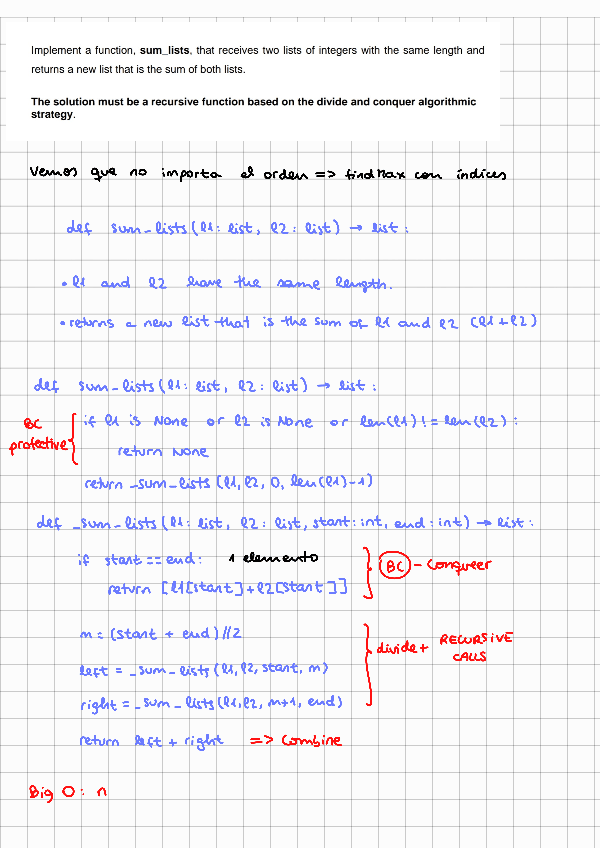 Implement a function, sum_lists, that receives two lists of integers with the same length and
returns a new list that is the sum of both lists.
The solution must be a recursive function based on the divide and conquer algorithmic
strategy.
Vemos que no importa el orden => findMax con índices
def sum-lists(l1: list, l2: list) → list:
• l1 and l2 have the same length.
• returns a new list that is the sum of l1 and l2 (l1+l2)
def sum-lists(l1: list, l2: list) → list:
BC protective
if l1 is None or l2 is None or len(l1)!=len(l2):
return None
return _sum_lists (l1, l2, 0, len(l1)-1)
def _sum_lists (l1: list, l2: list, start: int, end: int) → list:
if start == end: 1 elemento
return [l1[start]+l2[start]]
BC - Conqueer
m = (start + end)//2
left = _sum_lists (l1, l2, start, m)
right = _sum_lists (l1, l2, m+1, end)
divide + RECURSIVE
CALLS
return left + right => Combine
Big O: n